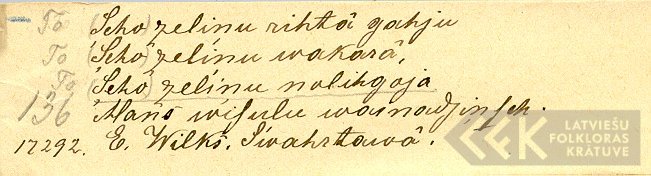 To (Scho) zelinu rihtâ gahju
To (Scho) zelinu wakarâ,
To (Scho) zelinu nolihgoja
136 Mans wisulu wainadsinsch.
17292. E. Wilks. Swahrtawâ.
LATVIEŠU
FOLKLORAS
KRĀTUVE